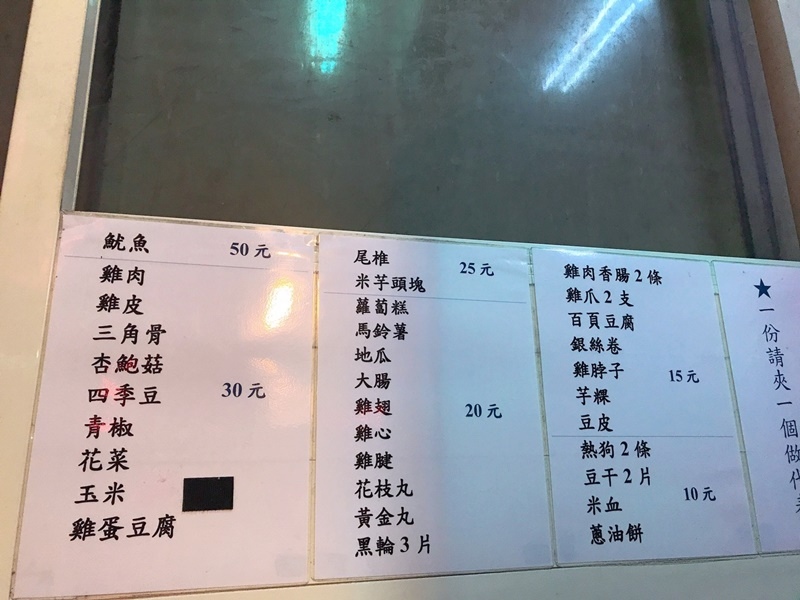 魷魚 50元
雞肉
雞皮
三角骨
杏鮑菇
四季豆 30元
青椒
花菜
玉米
雞蛋豆腐
尾椎 25元
米芋頭塊
蘿蔔糕
馬鈴薯
地瓜
大腸
雞翅 20元
雞心
雞腱
花枝丸
黃金丸
黑輪3片
雞肉香腸2條
雞爪2支
百頁豆腐
銀絲卷
雞脖子 15元
芋粿
豆皮
熱狗2條
豆干2片
米血 10元
蔥油餅
★一份請夾一個做代